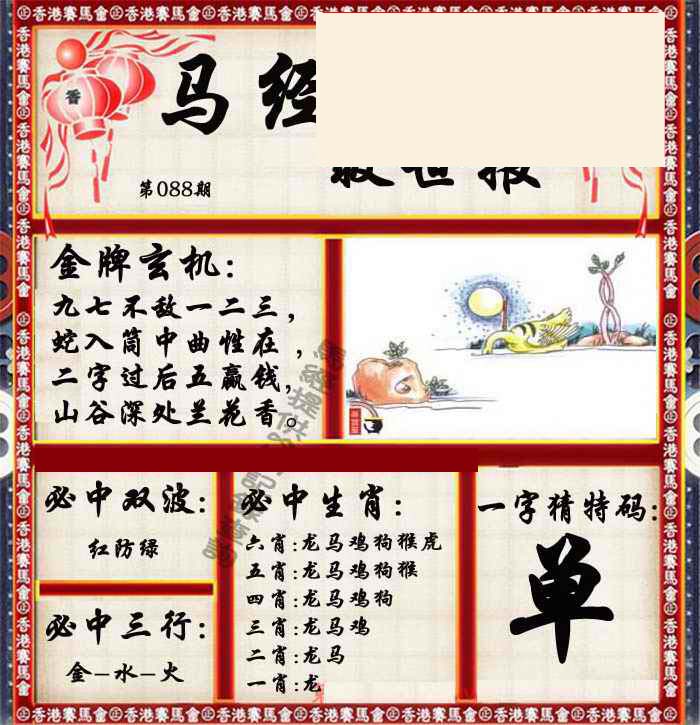 香港賽馬會
马经
救世报
第088期
金牌玄机:
九七不敌一二三，
蛇入筒中曲性在，
二字过后五赢钱，
山谷深处兰花香。
必中双波:
红防绿
必中三行:
金-水-火
必中生肖:
六肖:龙马鸡狗猴虎
五肖:龙马鸡狗猴
四肖:龙马鸡狗
三肖:龙马鸡
二肖:龙马
一肖:龙
一字猜特码:
单